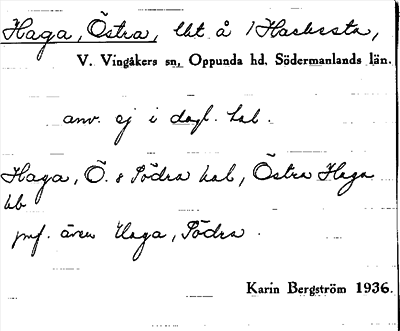 Haga, Östra, lht. å 1 Hacksta,
V. Vingåkers sn, Oppunda hd, Södermanlands län.
anv. ej i dagl. tal.
Haga, Ö. & Södra kal, Östra Haga
hb
jmf. även Haga, Södra.
Karin Bergström 1936.